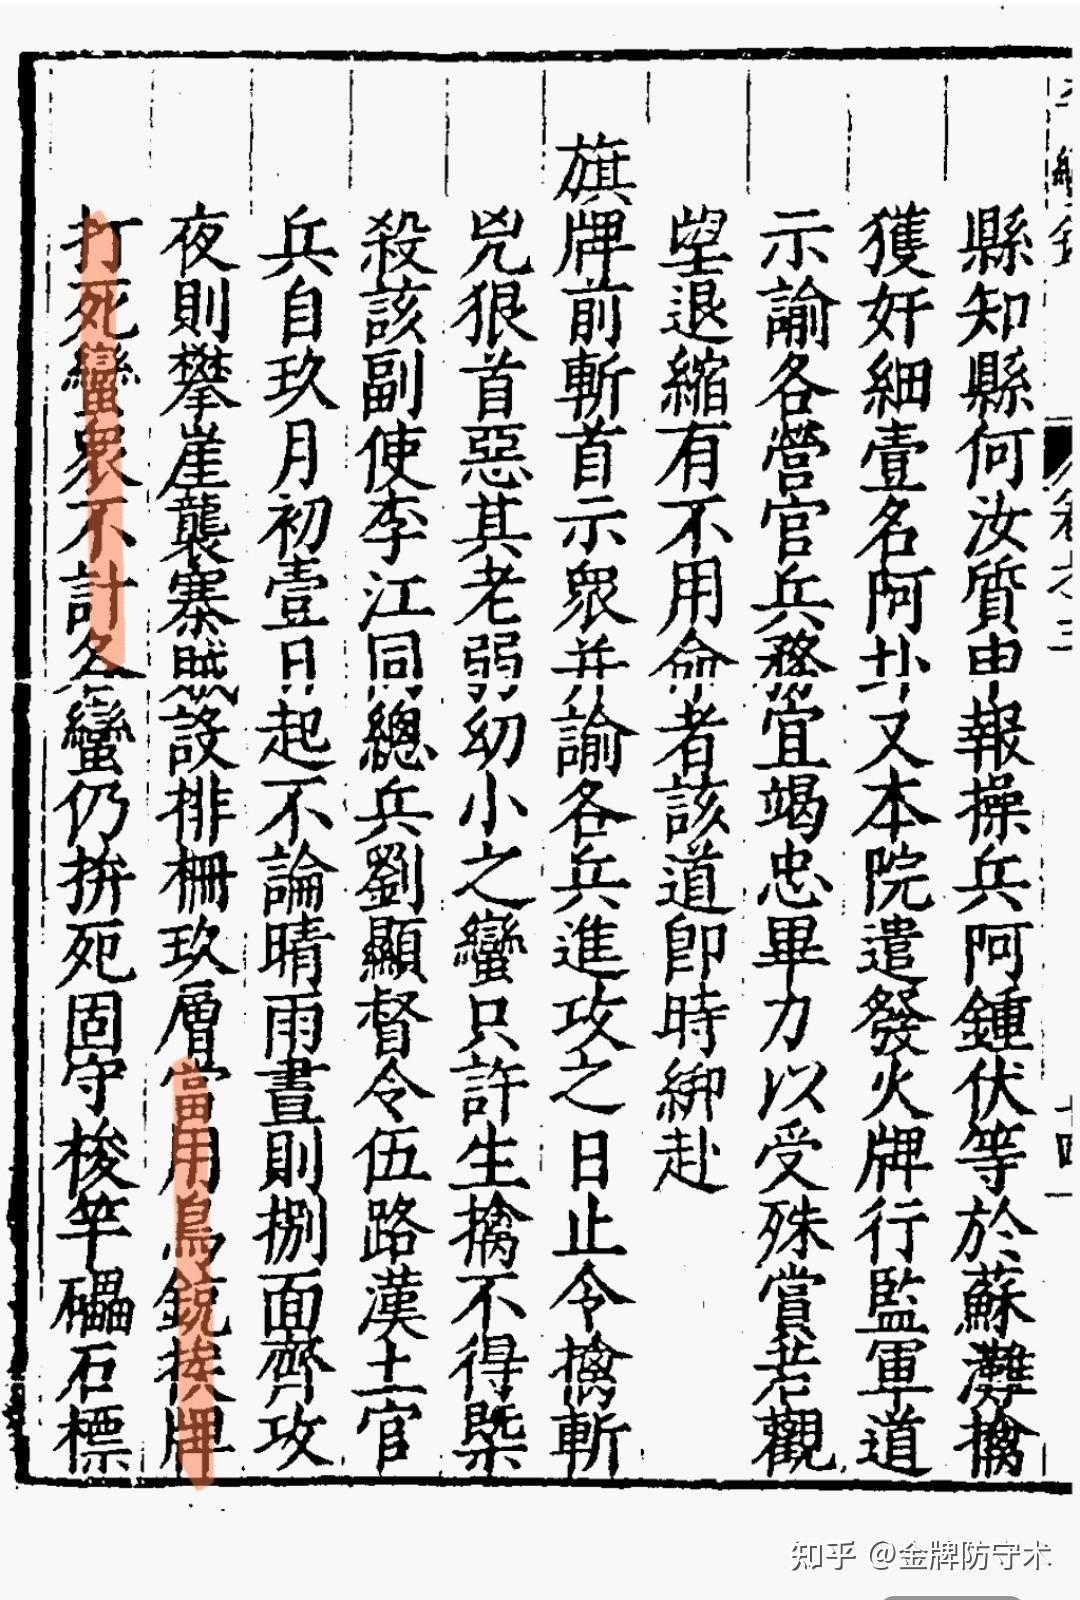 縣知縣何汝質申報操兵阿鍾伏等於蘇灘擒
獲奸細壹名阿卦又本院遣發火牌行監軍道
示諭各營官兵務宜竭忠畢力以受殊賞若觀
望退縮有不用命者該道卽時綁赴
旗牌前斬首示衆并諭各兵進攻之日止令擒斬
兇狠首惡其老弱幼小之蠻只許生擒不得槩
殺該副使李江同總兵劉顯督令伍路漢土官
兵自玖月初壹日起不論晴雨晝則捌面齊攻
夜則攀崖襲寨賊設排柵玖層當用鳥銃挨牌
打死蠻衆不計各蠻仍拚死固守梭竿礧石標
知乎 @金牌防守术